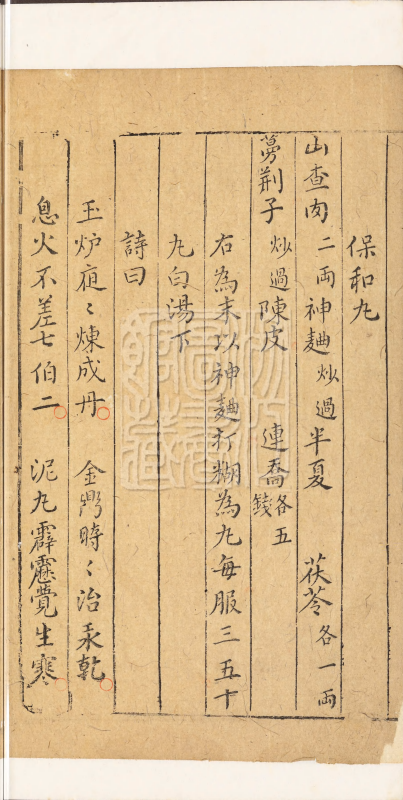 保和丸
山查肉二両神麯炒過半夏 茯苓各一両
蔓荆子炒過陳皮 連喬各五錢
右為末以神麯打糊為丸每服三五十
丸白湯下
詩曰
玉炉夜〻煉成丹 金鼎時〻治永乾
息火不差七伯二 泥丸霹靂覺生寒